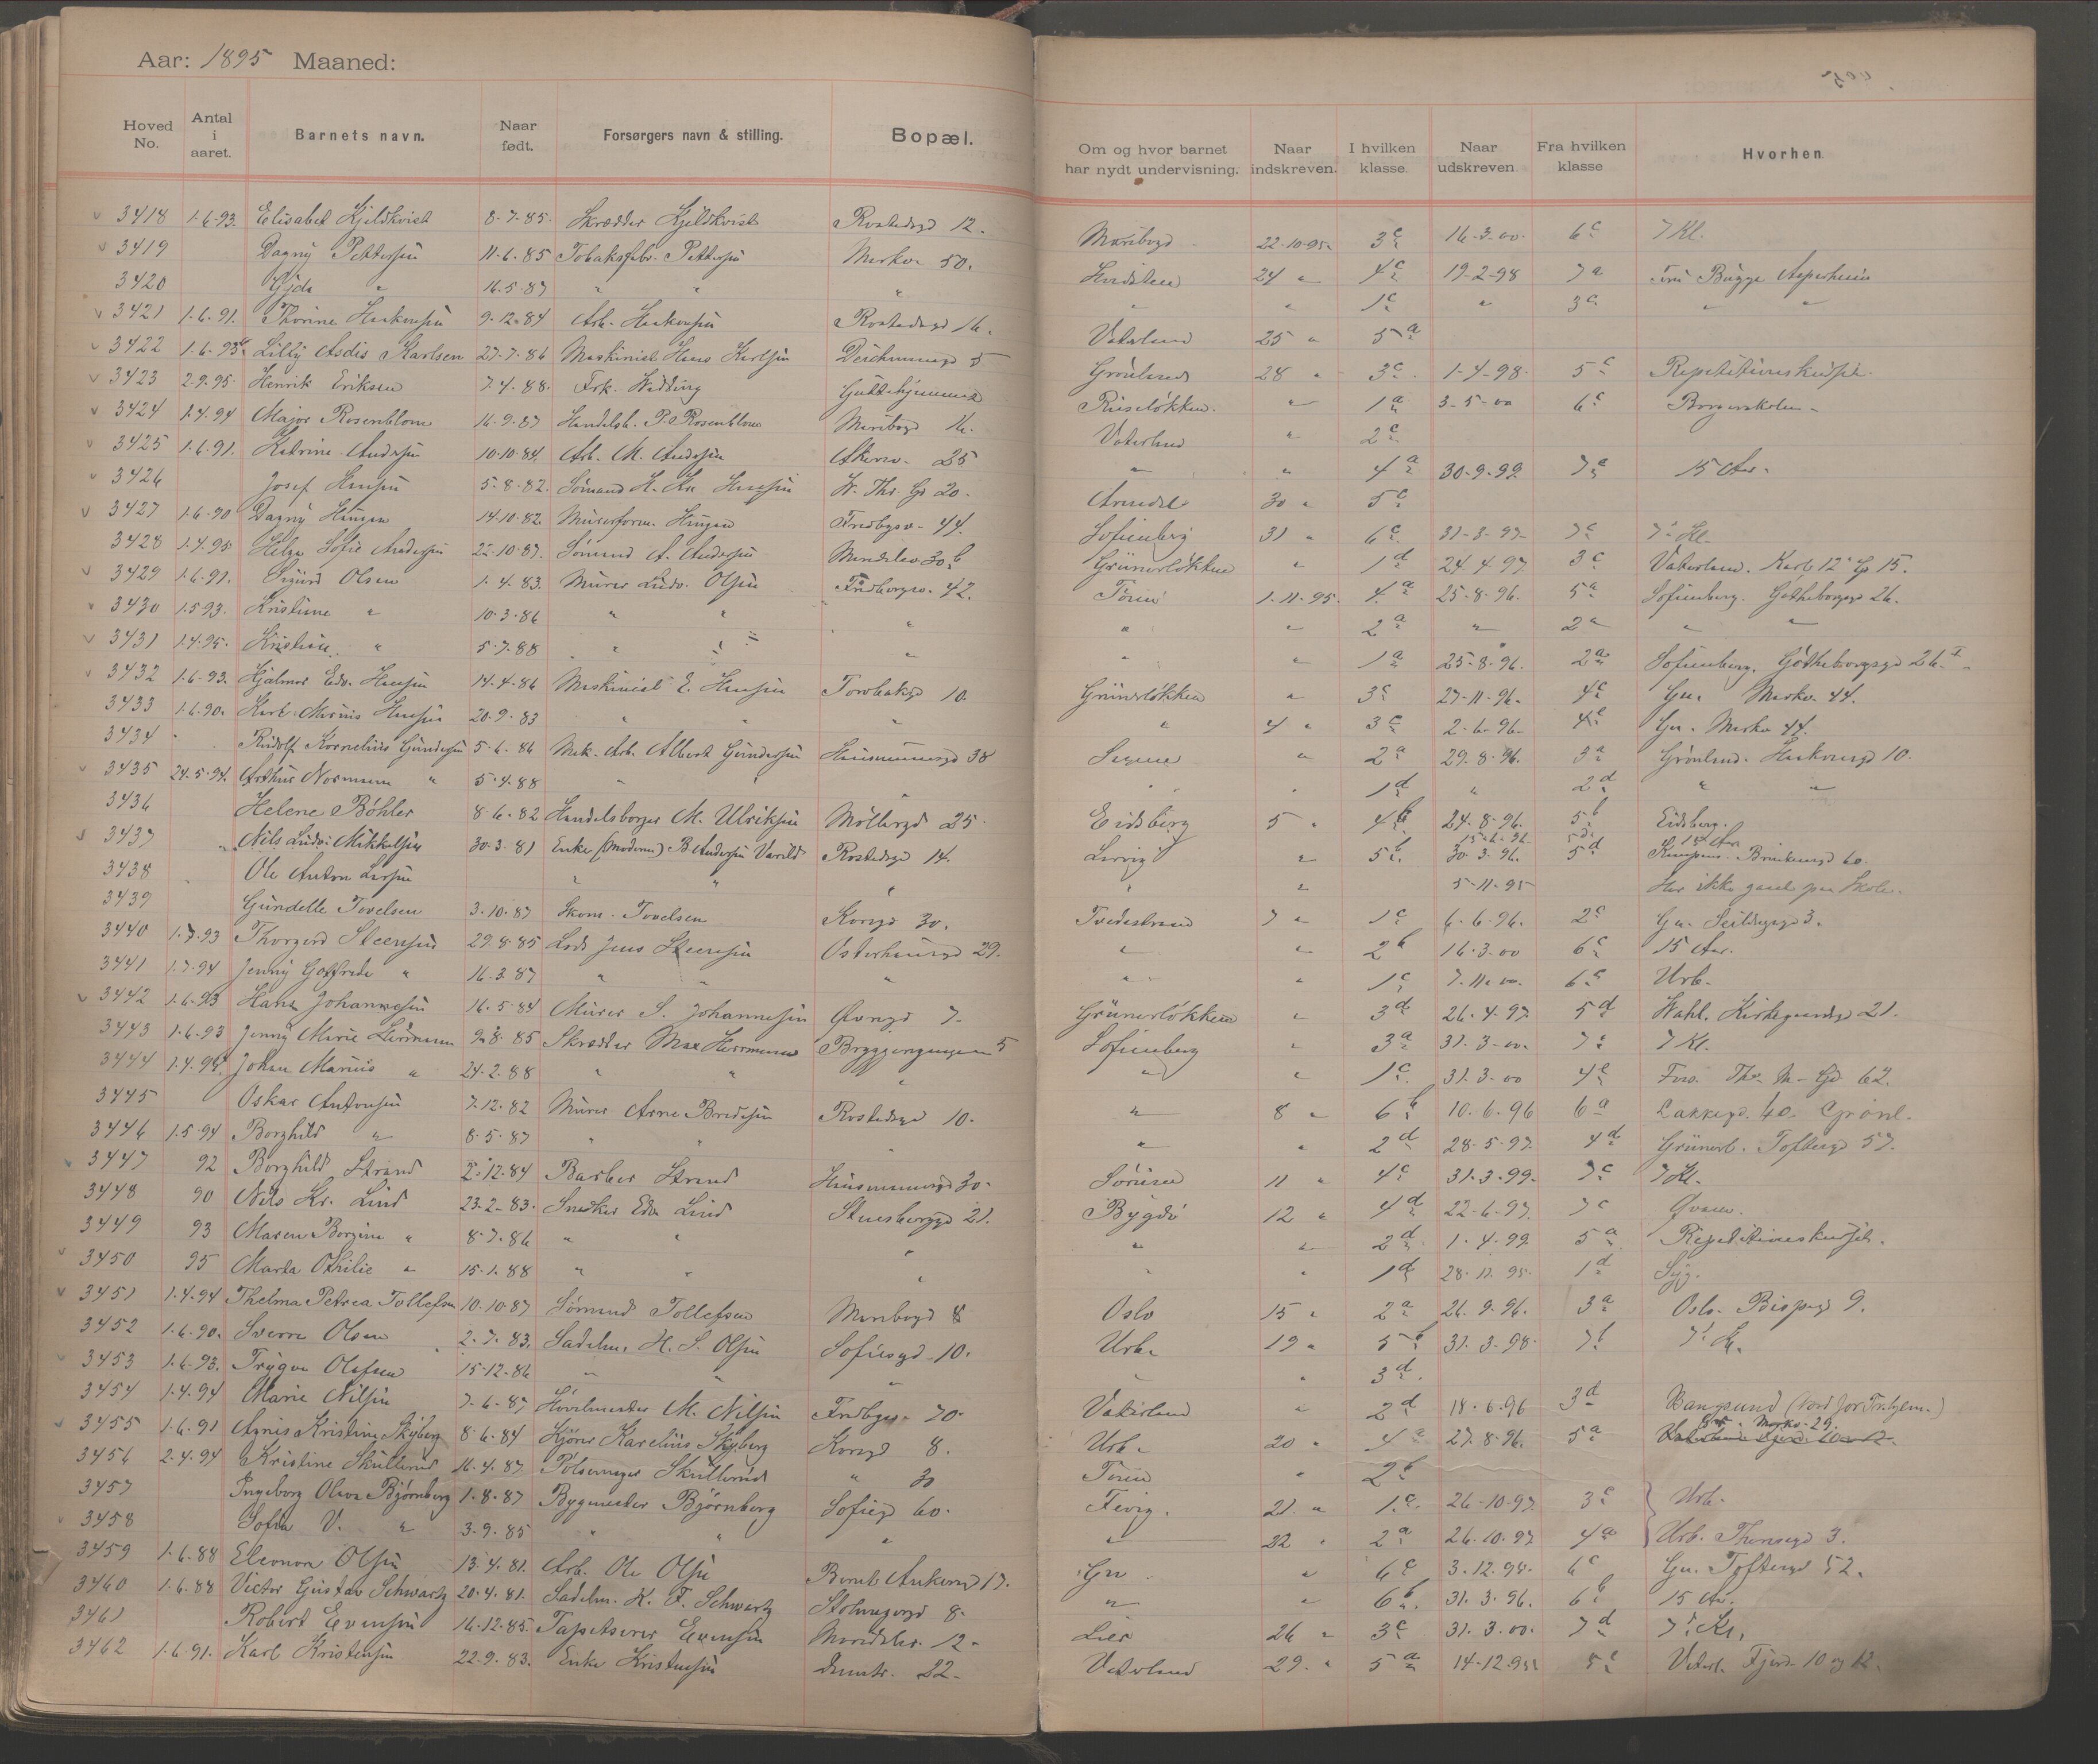 Aar: 1895 Maaned:
Hoved No. Antal i aaret. Barnets navn. Naar født. Forsørgers navn & stilling. Bopæl. Om og hvor barnet har nydt undervisning. Naar indskreven. I hvilken klasse Naar udskreven Fra hvilken klasse Hvorhen
3418 1.6.93. Elisabet Kjeldkvist 8-7-85. Skrædder Kjeldkvist Rostedsgd 12. Maribogd 22-10-95. 3c 16-3-00. 6c 7 Kl.
3419 Dagny Pettersen 11-6-85 Tobaksfabr. Pettersen Markv. 50. 24 " 4c 19-2-98 7a Fru Bugge Asperheim
3420 " 16.5.87 " " " " " 1c " 3c " "
3421 1.6.91. Thorine Haakonsen 9-12-84 Arb. Haakonsen Rostedsgd 16. Vaterland 25 " 5a
3422 1.6.93. Lilly Asdis Karlsen 27-7-86 Maskinist Hans Karlsen Deichmansgd 5 Grønland 28 " 3c 1-4-98. 5c Repetitionskursus.
3423 2.9.95. Henrik Eriksen 7.4.88. Frk. Guttehjemmet Ruseløkken. " 1a 3-5-00 6c Borgerskolen.
3424 1.4.94 Major Rosenblom 16-9-87 Handelsb. P. Rosenblom Maribogd 16. Vaterland " 2c
3425 1.6.91. Katrine Andersen 10-10-84. Arb. M. Andersen Akersv. 25 " " 4a 30-9-99. 7a 15 Aar.
3426 Josef Hansen 5-8-82. Sømand H. Kr. Hansen W. Thr. Gd 20. Arendal 30 " 5c
3427 1.6.90 Dagny Haugen 14-10-82. Murerform. Haugen Fredbgsv. 44. Sofienberg 31 " 6c 31-3-97. 7c 7. Kl.
3428 1.4.95 Helga Sofie Andersen 22-10-87. Sømand A. Andersen Maridalsv. 30b Grünerløkken " 1d 24.4.97. 3c Vaterland. Karl 12" Gd 15.
3429 1.6.91. Sigurd Olsen 1.4.83. Murer Ludv. Olsen Fredborgsv. 42. Tøien 1.11.95. 4a 25-8-96. 5a Sofienberg. Gøtheborggd 26.
3430 1.5.93. Kristiane " 10.3.86 " " " " " 2a " 2a " "
3431 1.4.95. Kristian " 5-7-88 " " " " " 1a 25-8-96. 2a Sofienberg. Gøtheborgsgd 26. I
3432 1.6.93. Hjalmar Edv. Hansen 14-4-86 Maskinist E. Hansen Torvbakgd 10. Grünerløkken " 3c 27-11-96. 4c Gru. Markv. 44.
3433 1.6.90. Karl Marius Hansen 20-9-83 " " " " 4 " 3c 2-6-96. 4c Gru. Markv 44.
3434 Rudolf Kornelius Gundersen 5-6-86 Mek. Arb. Albert Gundersen Hausmannsgd 38 " 2a 29.8.96. 3a Grønland. Haakonsgd 10.
3435 24.5.94. Arthur Normann " 5-4-88 " " " " " 1d " 2d " "
3436 Helene Bøhler 8-6-82 Handelsborger M. Ulriksen Møllergd 25. Eidsberg 5 " 4b 24-8-96. 5b Eidsberg.
3437 Nils Ludv. Mikkelsen 30-3-81 Enke (Moderen) B. Andersen Rostedsgd 14. Larvig " 5b 30.3.96. 5d 15 Aar Kampens. Brinkensgd 60.
3438 Ole Anton Larsen " " " " " 5-11-95 Har ikke gaaet paa Skole.
3439 Gundelle Tovelsen 3-10-87 Skom. Tovelsen Korsgd 30. Tvedestrand 7 " 1c 6-6-96. 2c Gru. Seilduksgd 3.
3440 1.7.93 Thorgerd Steensen 29.8.85 Lods Jens Steensen Osterhausgd 29. " " 2b 16.3.00 6c 15 Aar.
3441 1.7.94 Jenny Gotfreda " 16.3.87 " " " " " 1c 7.11.00. 6c Urb.
3442 1.6.93 Hans Johannesen 16.5.84 Murer S. Johannesen Øvregd 7. Grünerløkken " 3d 26.4.97. 5d Wahl. Kirkegaardsgd 21.
3443 1.6.93 Jenny Marie Hermann 9.8.85 Skrædder Max Herrmann Bryggergangen 5 Sofienberg " 3a 31.3-00. 7c 7 Kl.
3444 1.4.95. Johan Marius " 24-2-88 " " " " " 1c. 31.3-00 4c Fos. Thv. M- Gd 62.
3445 Oskar Antonsen 7.12.82 Murer Arne Bredesen Rostedsgd 10. " 8 " 6b 10.6.96 6a Lakkegd. 40 Grønl.
3446 1.5.94 Borghild " 8.5-87 " " " " " 2d 28.5-97. 4d Grünerl. Toftesgd 57.
3447 92 Borghild Strand 2.12.84 Barber Strand Hausmannsgd 30. 11 " 4c 31.3.99. 7c 7 Kl.
3448 90 Nils Kr. Lind 23.2.83. Snedker Edv. Lind Stensberggd 21. Bygdø 12 " 4d 22-6-97. 7c Qvam.
3449 93 Maren Borgine " 8-7-86 " " " " " 2d 1.4.99 5a Repetitionskursus.
3450 95 Marta Othilie " 15.1.88 " " " " " 1d 28.11.95. 1d Syg.
3451 1.4.94 Thelma Petrea Tollefsen 10.10.87 Sømand Tollefsen Maribogd 8 Oslo 15 " 2a 26.9.96. 3a Oslo. Bispegd 9.
3452 1.6.90. Sverre Olsen 2.7.83. Sadelm. H. S. Olsen Sofiesgd 10. Urb. 19 " 5b 31.3-98. 7b 7. Kl.
3453 1.6.93. Trygve Olafsen 15-12-86 " " " " " 3d.
3454 1.4.94 Marie Nilsen 7-6-87 Høvelmester M. Nilsen Fredbgsv. 70. Vaterland " 2d 18.6.96 3d Bangsund (Nord for Trhjem.)
3455 1.6.91 Agnes Kristine Skyberg 8.6.84 Kjører Karelius Skyberg Korsgd 8. Urb. 20 " 4a 27.8.96. 5a Markv. 29.
3456 2.4.94 Kristine Skullerud 16.4.87. Pølsemager Skullerud " 30 Tøien " 2b
3457 Ingeborg Olava Bjørnberg 1.8.87 Bygmester Bjørnberg Sofiegd 60. Fevig. 21. " 1.c. 26-10-97. 3c Urb.
3458 Sofie V. " 3.9.85 " " " " 22 " 2a 26.10.97 4a Urb. Thorsgd 3.
3459 1.6.88 Eleonora Olsen 13.4.81. Arb. Ole Olsen Bernt Ankersgd 17. Gru. " 6c 3.12.98. 6c Gru. Toftesgd 52.
3460 1.6.88 Victor Gustav Schwartz 20.4.81. Sadelm. K. F. Schwartz Stolmagergd 8. " " 6b. 31.3.96. 6b 15 Aar.
3461 Robert Evensen 16.12.85. Tapetserer Evensen Maridalsv. 12. Lier 26 " 3c 31.3.00. 7d 7. Kl.
3462 1.6.91. Karl Kristensen 22.9.83. Enke Kristensen Damstr. 22. Vaterland 29. " 5a 14-12-95. 5c Vaterl. Fjerd. 10 og 12.